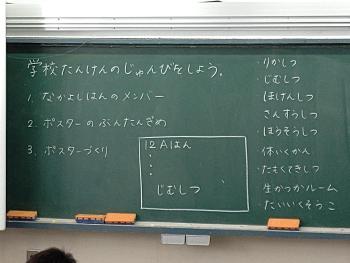 学校たんけんのじゅんびをしよう。
1. なかよしはんのメンバー
2. ポスターのぶんたんぎめ
3. ポスターづくり
12Aはん
じむしつ
・りかしつ
・じむしつ
ほけんしつ
さんすうしつ
・ほうそうしつ
・体いくかん
・たもくてきしつ
・生かつかルーム
・たいいくそうこ